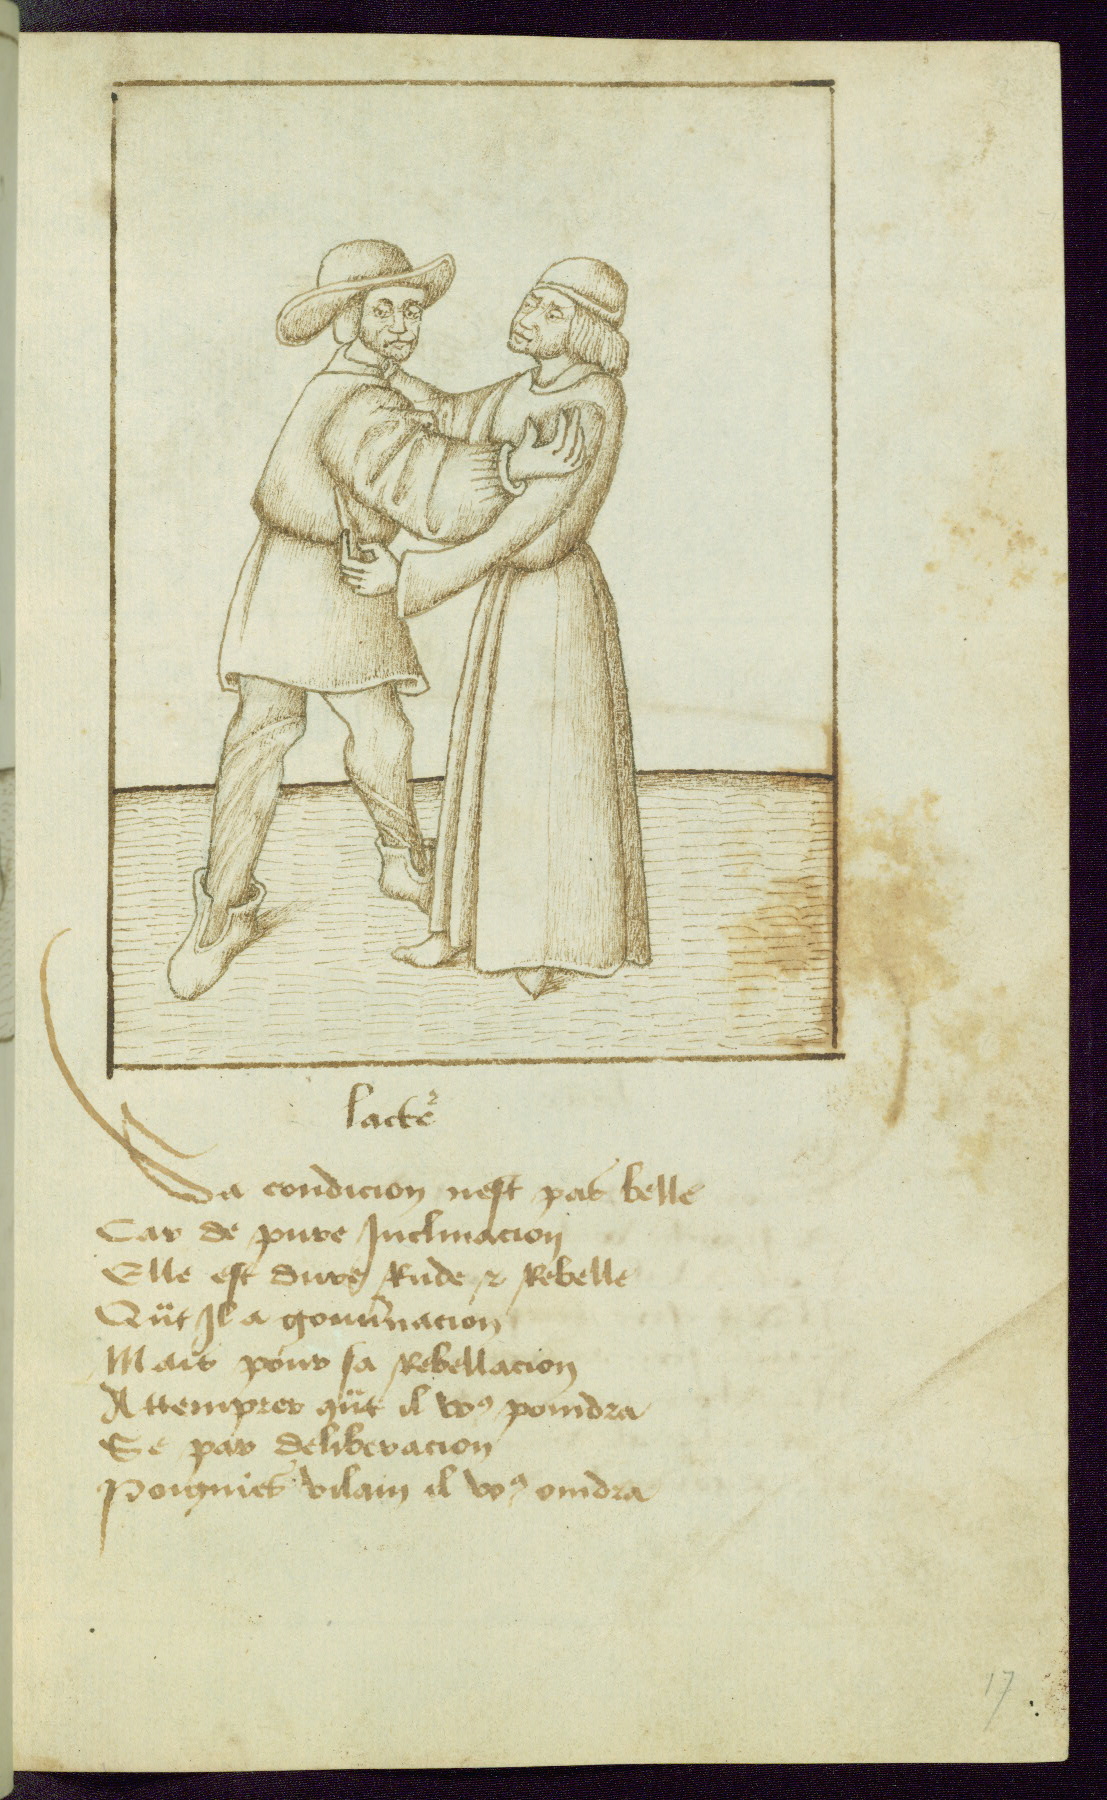 lacteur
Sa condicion nest pas belle
Car de pure Inclinacion
Elle est dure Rude & Rebelle
Qūt Il a gouūnacion
Mais pour sa Rebellacion
Attemprer qūt il vo9 poindra
Se par deliberacion
Poignies vilain il vo9 oindra
17